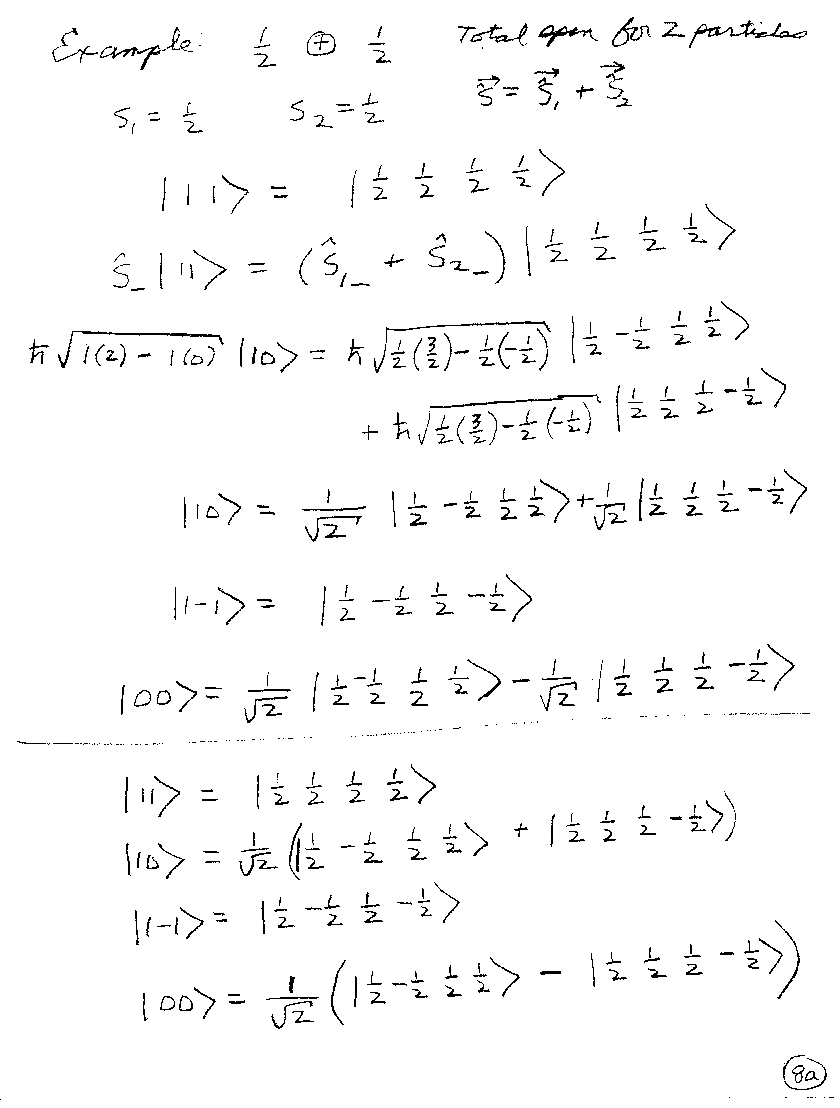 Example: ½ ⊕ ½ Total spin for 2 particles
S₁ = ½ S₂ = ½ S⃗ = S⃗₁ + S⃗₂
|1 1⟩ = |½ ½ ½ ½⟩
Ŝ₋|11⟩ = (Ŝ₁₋ + Ŝ₂₋)|½ ½ ½ ½⟩
ħ√(1(2) − 1(0)) |10⟩ = ħ√(½(3/2) − ½(−½)) |½ −½ ½ ½⟩
+ ħ√(½(3/2) − ½(−½)) |½ ½ ½ −½⟩
|10⟩ = 1/√2 |½ −½ ½ ½⟩ + 1/√2 |½ ½ ½ −½⟩
|1−1⟩ = |½ −½ ½ −½⟩
|00⟩ = 1/√2 |½ −½ ½ ½⟩ − 1/√2 |½ ½ ½ −½⟩
|11⟩ = |½ ½ ½ ½⟩
|10⟩ = 1/√2 (|½ −½ ½ ½⟩ + |½ ½ ½ −½⟩)
|1−1⟩ = |½ −½ ½ −½⟩
|00⟩ = 1/√2 (|½ −½ ½ ½⟩ − |½ ½ ½ −½⟩)
8a